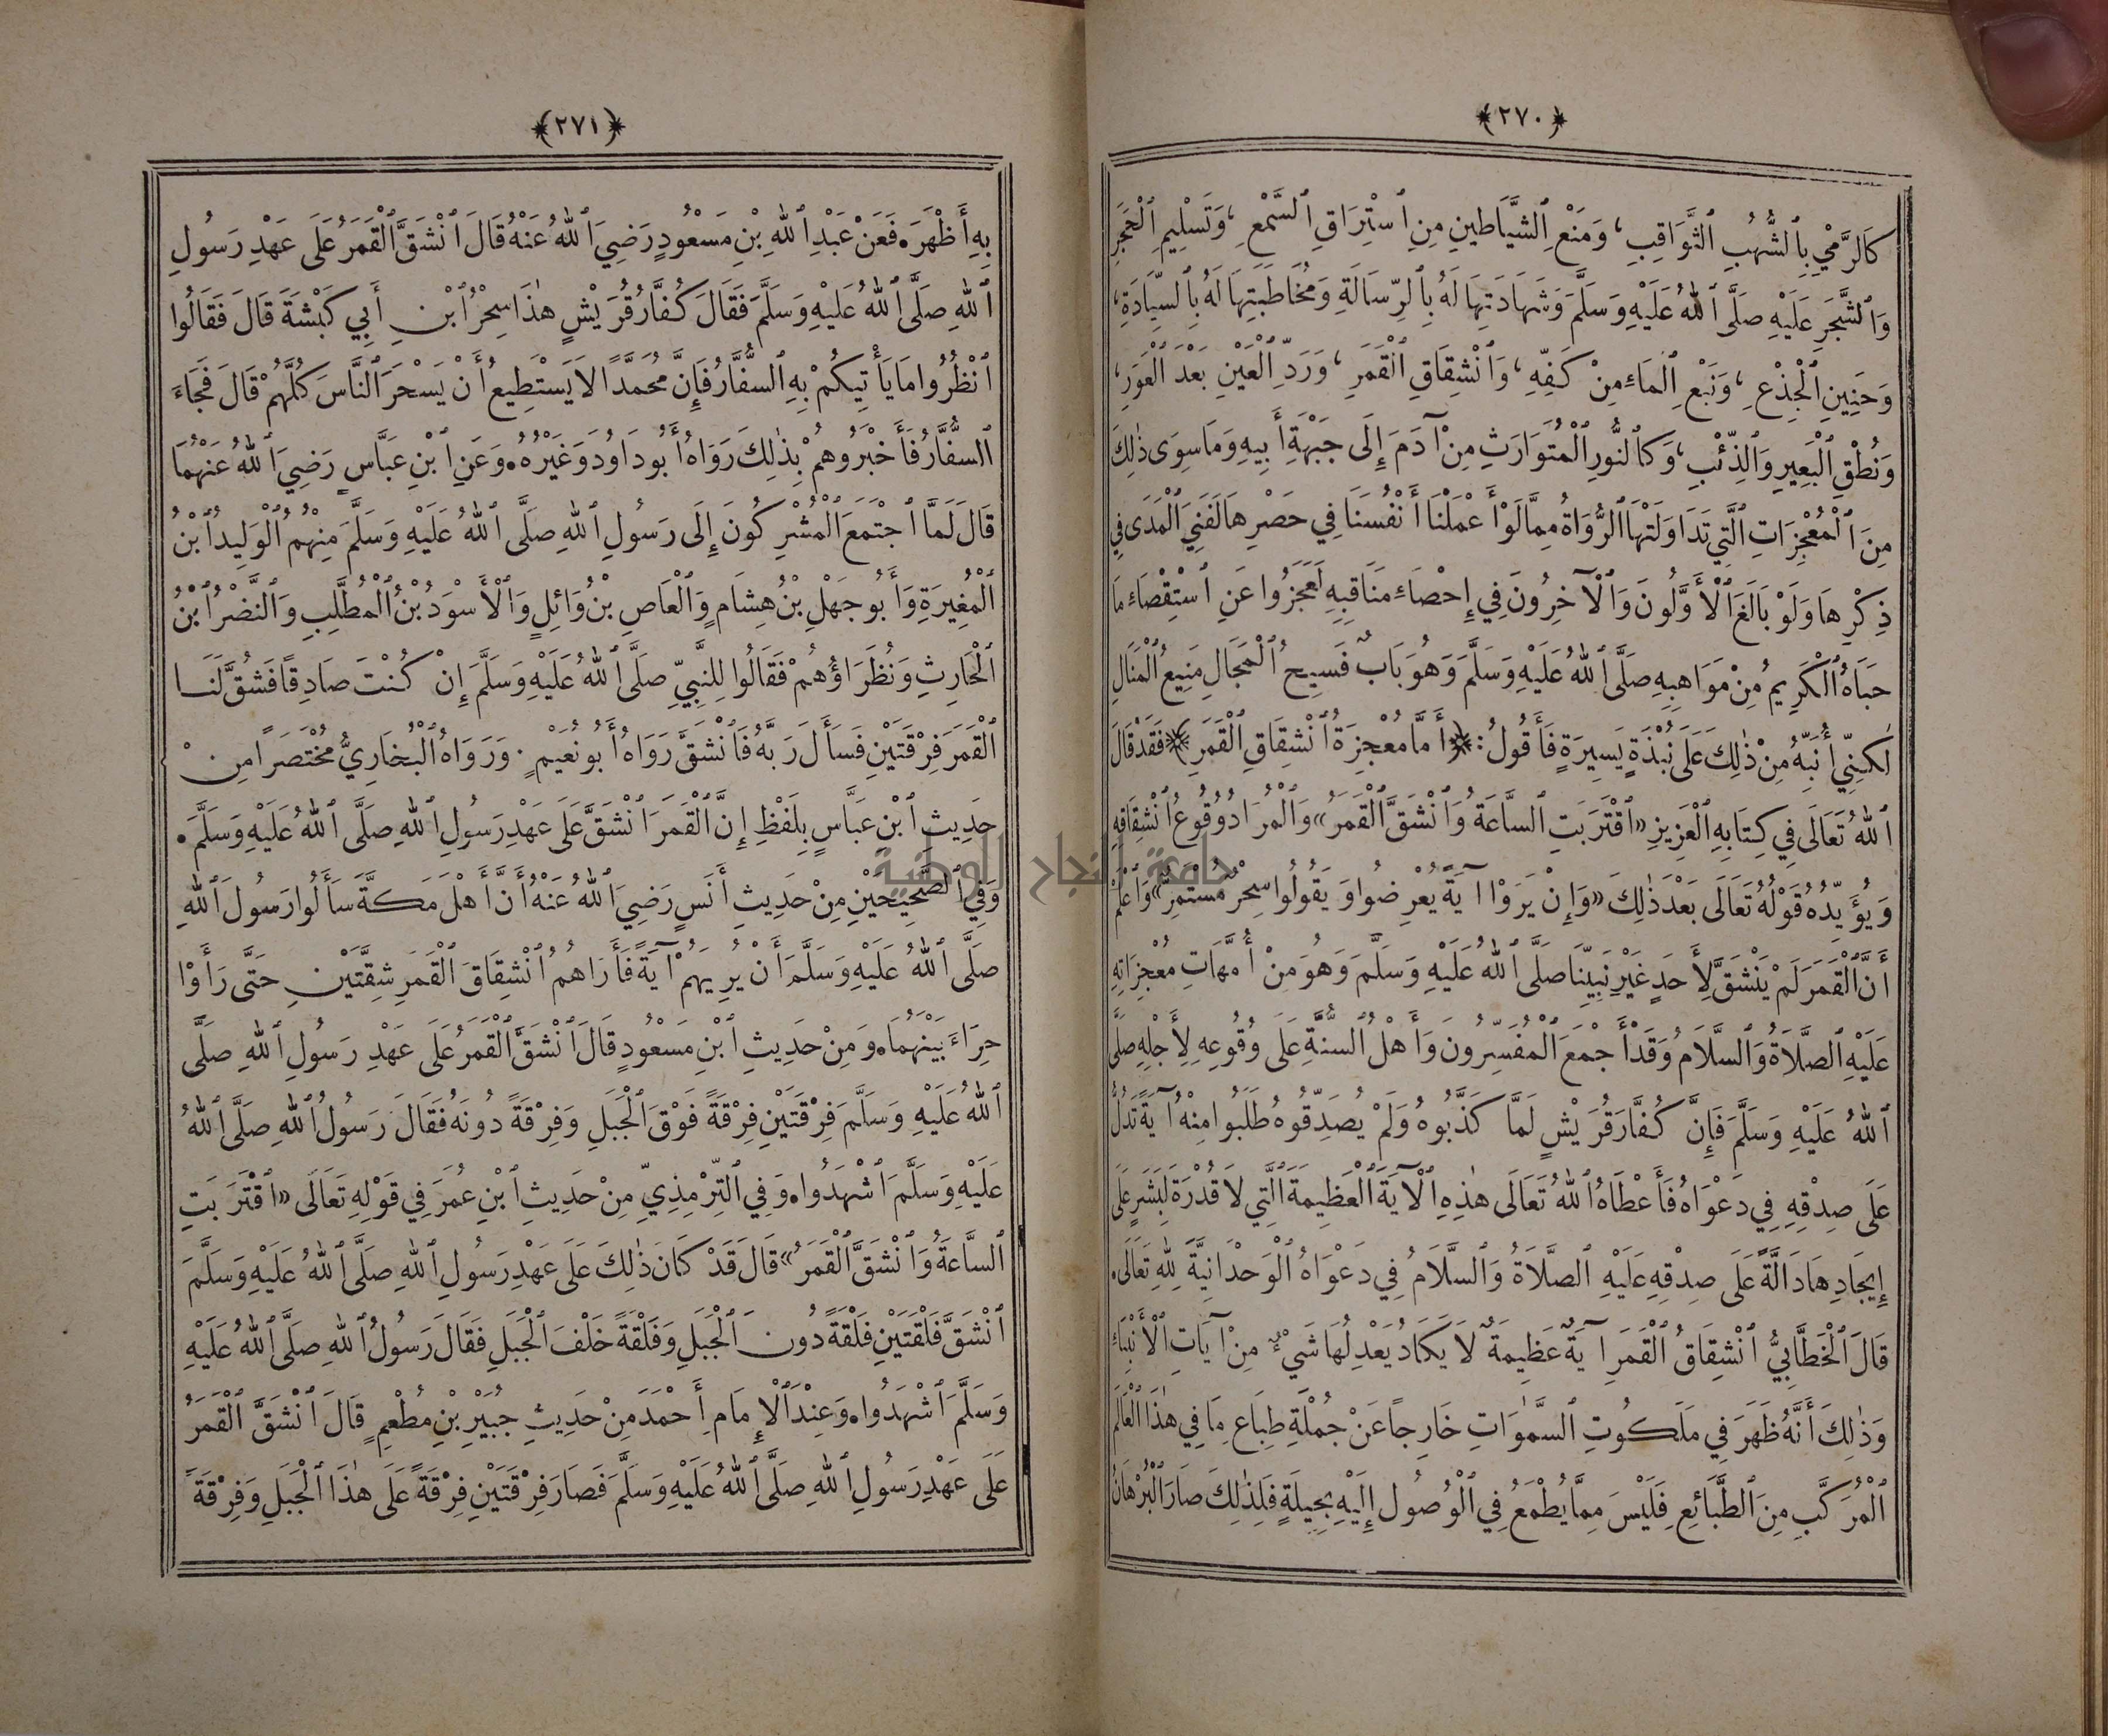 ﴿٢٧٠﴾
كَالرَّمْيِ بِٱلشُّهُبِ ٱلثَّوَاقِبِ، وَمَنْعِ ٱلشَّيَاطِينِ مِنِ ٱسْتِرَاقِ ٱلسَّمْعِ، وَتَسْلِيمِ ٱلْحَجَرِ
وَٱلشَّجَرِ عَلَيْهِ صَلَّى ٱللهُ عَلَيْهِ وَسَلَّمَ وَشَهَادَتِهَا لَهُ بِٱلرِّسَالَةِ وَمُخَاطَبَتِهَا لَهُ بِٱلسِّيَادَةِ،
وَحَنِينِ ٱلْجِذْعِ، وَنَبْعِ ٱلْمَاءِ مِنْ كَفِّهِ، وَٱنْشِقَاقِ ٱلْقَمَرِ، وَرَدِّ ٱلْعَيْنِ بَعْدَ ٱلْعَوَرِ،
وَنُطْقِ ٱلْبَعِيرِ وَٱلذِّئْبِ، وَكَٱلنُّورِ ٱلْمُتَوَارَثِ مِنْ آدَمَ إِلَى جَبْهَةِ أَبِيهِ وَمَا سِوَى ذٰلِكَ
مِنَ ٱلْمُعْجِزَاتِ ٱلَّتِي تَدَاوَلَتْهَا ٱلرُّوَاةُ مِمَّا لَوْ أَعْمَلْنَا أَنْفُسَنَا فِي حَصْرِهَا لَفَنِيَ ٱلْمَدَى فِي
ذِكْرِهَا وَلَوْ بَالَغَ ٱلْأَوَّلُونَ وَٱلْآخِرُونَ فِي إِحْصَاءِ مَنَاقِبِهِ لَعَجَزُوا عَنِ ٱسْتِقْصَاءِ مَا
حَبَاهُ ٱلْكَرِيمُ مِنْ مَوَاهِبِهِ صَلَّى ٱللهُ عَلَيْهِ وَسَلَّمَ وَهُوَ بَابٌ فَسِيحُ ٱلْمَجَالِ مَنِيعُ ٱلْمَنَالِ
لٰكِنِّي أُنَبِّهُ مِنْ ذٰلِكَ عَلَى نُبْذَةٍ يَسِيرَةٍ فَأَقُولُ: ﴿أَمَّا مُعْجِزَةُ ٱنْشِقَاقِ ٱلْقَمَرِ﴾ فَقَدْ قَالَ
ٱللهُ تَعَالَى فِي كِتَابِهِ ٱلْعَزِيزِ «ٱقْتَرَبَتِ ٱلسَّاعَةُ وَٱنْشَقَّ ٱلْقَمَرُ» وَٱلْمُرَادُ وُقُوعُ ٱنْشِقَاقِهِ
وَيُؤَيِّدُهُ قَوْلُهُ تَعَالَى بَعْدَ ذٰلِكَ «وَإِنْ يَرَوْا آيَةً يُعْرِضُوا وَيَقُولُوا سِحْرٌ مُسْتَمِرٌّ» وَٱعْلَمْ
أَنَّ ٱلْقَمَرَ لَمْ يَنْشَقَّ لِأَحَدٍ غَيْرِ نَبِيِّنَا صَلَّى ٱللهُ عَلَيْهِ وَسَلَّمَ وَهُوَ مِنْ أُمَّهَاتِ مُعْجِزَاتِهِ
عَلَيْهِ ٱلصَّلَاةُ وَٱلسَّلَامُ وَقَدْ أَجْمَعَ ٱلْمُفَسِّرُونَ وَأَهْلُ ٱلسُّنَّةِ عَلَى وُقُوعِهِ لِأَجْلِهِ صَلَّى
ٱللهُ عَلَيْهِ وَسَلَّمَ فَإِنَّ كُفَّارَ قُرَيْشٍ لَمَّا كَذَّبُوهُ وَلَمْ يُصَدِّقُوهُ طَلَبُوا مِنْهُ آيَةً تَدُلُّ
عَلَى صِدْقِهِ فِي دَعْوَاهُ فَأَعْطَاهُ ٱللهُ تَعَالَى هٰذِهِ ٱلْآيَةَ ٱلْعَظِيمَةَ ٱلَّتِي لَا قُدْرَةَ لِبَشَرٍ عَلَى
إِيجَادِهَا دَالَّةً عَلَى صِدْقِهِ عَلَيْهِ ٱلصَّلَاةُ وَٱلسَّلَامُ فِي دَعْوَاهُ ٱلْوَحْدَانِيَّةَ لِلهِ تَعَالَى.
قَالَ ٱلْخَطَّابِيُّ ٱنْشِقَاقُ ٱلْقَمَرِ آيَةٌ عَظِيمَةٌ لَا يَكَادُ يَعْدِلُهَا شَيْءٌ مِنْ آيَاتِ ٱلْأَنْبِيَاءِ
وَذٰلِكَ أَنَّهُ ظَهَرَ فِي مَلَكُوتِ ٱلسَّمٰوَاتِ خَارِجًا عَنْ جُمْلَةِ طِبَاعِ مَا فِي هٰذَا ٱلْعَالَمِ
ٱلْمُرَكَّبِ مِنَ ٱلطَّبَائِعِ فَلَيْسَ مِمَّا يُطْمَعُ فِي ٱلْوُصُولِ إِلَيْهِ بِحِيلَةٍ فَلِذٰلِكَ صَارَ ٱلْبُرْهَانُ
﴿٢٧١﴾
بِهِ أَظْهَرَ. فَعَنْ عَبْدِ ٱللهِ بْنِ مَسْعُودٍ رَضِيَ ٱللهُ عَنْهُ قَالَ ٱنْشَقَّ ٱلْقَمَرُ عَلَى عَهْدِ رَسُولِ
ٱللهِ صَلَّى ٱللهُ عَلَيْهِ وَسَلَّمَ فَقَالَ كُفَّارُ قُرَيْشٍ هٰذَا سِحْرُ ٱبْنِ أَبِي كَبْشَةَ قَالَ فَقَالُوا
ٱنْظُرُوا مَا يَأْتِيكُمْ بِهِ ٱلسُّفَّارُ فَإِنَّ مُحَمَّدًا لَا يَسْتَطِيعُ أَنْ يَسْحَرَ ٱلنَّاسَ كُلَّهُمْ قَالَ فَجَاءَ
ٱلسُّفَّارُ فَأَخْبَرُوهُمْ بِذٰلِكَ رَوَاهُ أَبُو دَاوُدَ وَغَيْرُهُ. وَعَنِ ٱبْنِ عَبَّاسٍ رَضِيَ ٱللهُ عَنْهُمَا
قَالَ لَمَّا ٱجْتَمَعَ ٱلْمُشْرِكُونَ إِلَى رَسُولِ ٱللهِ صَلَّى ٱللهُ عَلَيْهِ وَسَلَّمَ مِنْهُمُ ٱلْوَلِيدُ ٱبْنُ
ٱلْمُغِيرَةِ وَأَبُو جَهْلِ بْنُ هِشَامٍ وَٱلْعَاصِ بْنُ وَائِلٍ وَٱلْأَسْوَدُ بْنُ ٱلْمُطَّلِبِ وَٱلنَّضْرُ ٱبْنُ
ٱلْحَارِثِ وَنُظَرَاؤُهُمْ فَقَالُوا لِلنَّبِيِّ صَلَّى ٱللهُ عَلَيْهِ وَسَلَّمَ إِنْ كُنْتَ صَادِقًا فَشُقَّ لَنَا
ٱلْقَمَرَ فِرْقَتَيْنِ فَسَأَلَ رَبَّهُ فَٱنْشَقَّ رَوَاهُ أَبُو نُعَيْمٍ. وَرَوَاهُ ٱلْبُخَارِيُّ مُخْتَصَرًا مِنْ
حَدِيثِ ٱبْنِ عَبَّاسٍ بِلَفْظِ إِنَّ ٱلْقَمَرَ ٱنْشَقَّ عَلَى عَهْدِ رَسُولِ ٱللهِ صَلَّى ٱللهُ عَلَيْهِ وَسَلَّمَ.
وَفِي ٱلصَّحِيحَيْنِ مِنْ حَدِيثِ أَنَسٍ رَضِيَ ٱللهُ عَنْهُ أَنَّ أَهْلَ مَكَّةَ سَأَلُوا رَسُولَ ٱللهِ
صَلَّى ٱللهُ عَلَيْهِ وَسَلَّمَ أَنْ يُرِيَهُمْ آيَةً فَأَرَاهُمُ ٱنْشِقَاقَ ٱلْقَمَرِ شِقَّتَيْنِ حَتَّى رَأَوْا
حِرَاءَ بَيْنَهُمَا. وَمِنْ حَدِيثِ ٱبْنِ مَسْعُودٍ قَالَ ٱنْشَقَّ ٱلْقَمَرُ عَلَى عَهْدِ رَسُولِ ٱللهِ صَلَّى
ٱللهُ عَلَيْهِ وَسَلَّمَ فِرْقَتَيْنِ فِرْقَةً فَوْقَ ٱلْجَبَلِ وَفِرْقَةً دُونَهُ فَقَالَ رَسُولُ ٱللهِ صَلَّى ٱللهُ
عَلَيْهِ وَسَلَّمَ ٱشْهَدُوا. وَفِي ٱلتِّرْمِذِيِّ مِنْ حَدِيثِ ٱبْنِ عُمَرَ فِي قَوْلِهِ تَعَالَى «ٱقْتَرَبَتِ
ٱلسَّاعَةُ وَٱنْشَقَّ ٱلْقَمَرُ» قَالَ قَدْ كَانَ ذٰلِكَ عَلَى عَهْدِ رَسُولِ ٱللهِ صَلَّى ٱللهُ عَلَيْهِ وَسَلَّمَ
ٱنْشَقَّ فَلْقَتَيْنِ فَلْقَةً دُونَ ٱلْجَبَلِ وَفَلْقَةً خَلْفَ ٱلْجَبَلِ فَقَالَ رَسُولُ ٱللهِ صَلَّى ٱللهُ عَلَيْهِ
وَسَلَّمَ ٱشْهَدُوا. وَعِنْدَ ٱلْإِمَامِ أَحْمَدَ مِنْ حَدِيثِ جُبَيْرِ بْنِ مُطْعِمٍ قَالَ ٱنْشَقَّ ٱلْقَمَرُ
عَلَى عَهْدِ رَسُولِ ٱللهِ صَلَّى ٱللهُ عَلَيْهِ وَسَلَّمَ فَصَارَ فِرْقَتَيْنِ فِرْقَةً عَلَى هٰذَا ٱلْجَبَلِ وَفِرْقَةً
جامعة النجاح الوطنية